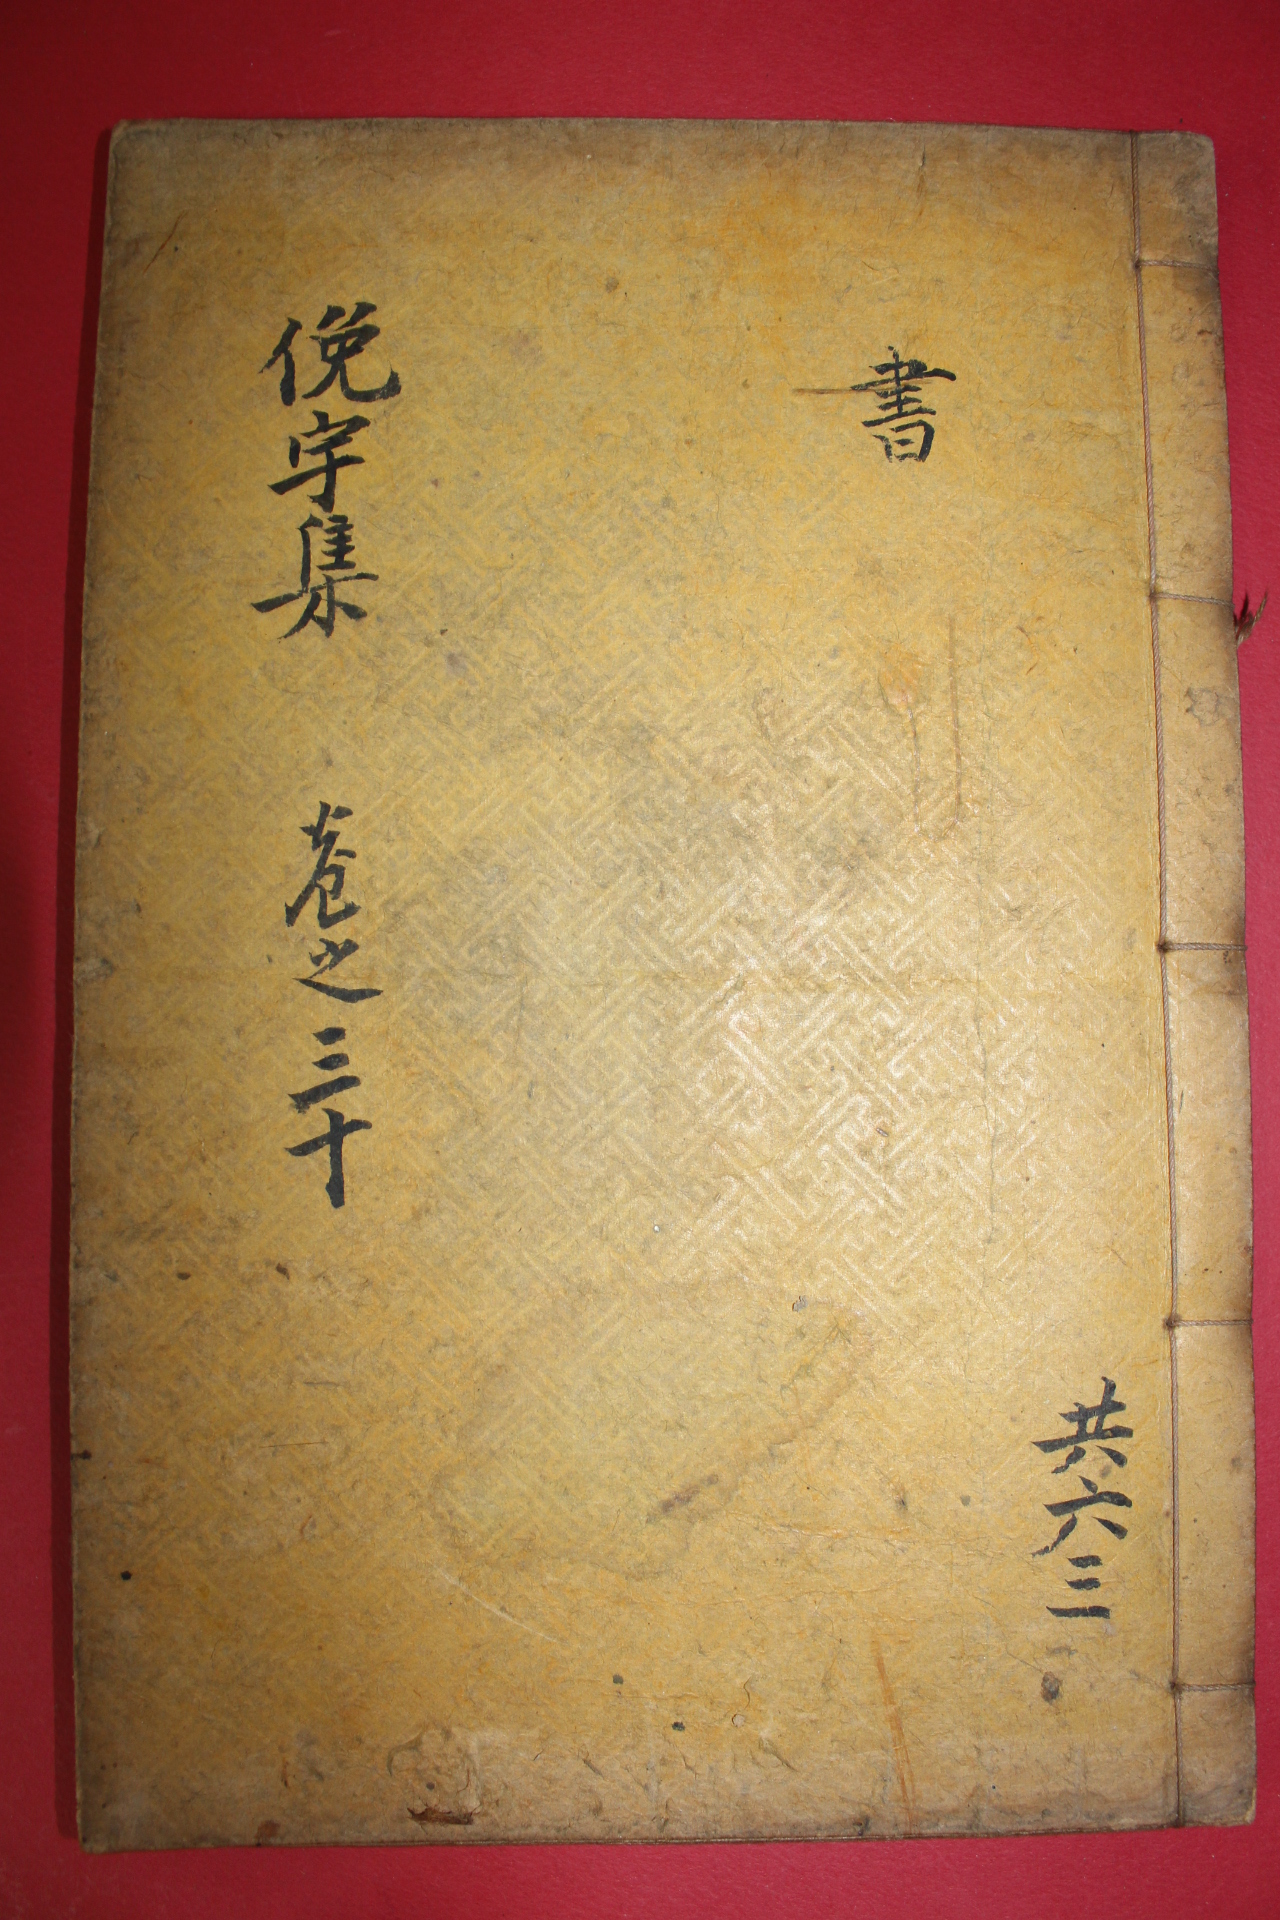 共六三
書
俛宇集 卷之三十